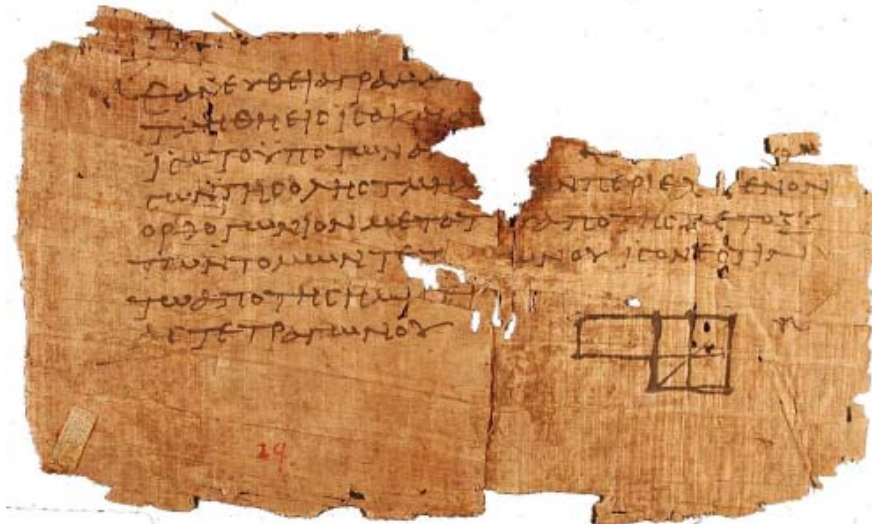 ΕΑΝ ΕΥΘΕΙΑ ΓΡΑΜΜ
ΤΜΗΘΗ ΕΙϹ ΙϹΑ Κ
ΙϹΑ ΤΟ ΥΠΟ ΤΩΝ
ϹΩΝ ΤΗϹ ΟΛΗϹ ΤΜΗ Ν ΠΕΡΙΕΧ ΕΝΟΝ
ΟΡΘΟΓΩΝΙΟΝ ΜΕΤΑ ΤΟΥ ΑΠΟ ΤΗϹ ΜΕΤΟΞΥ
ΤΩΝ ΤΟΜΩΝ ΤΕΤ ΩΝΟΥ ΙϹΟΝ ΕϹΤΙΝ
ΤΩ ΑΠΟ ΤΗϹ ΗΜΙ
ΑϹ ΤΕΤΡΑΓΩΝΟΥ
29